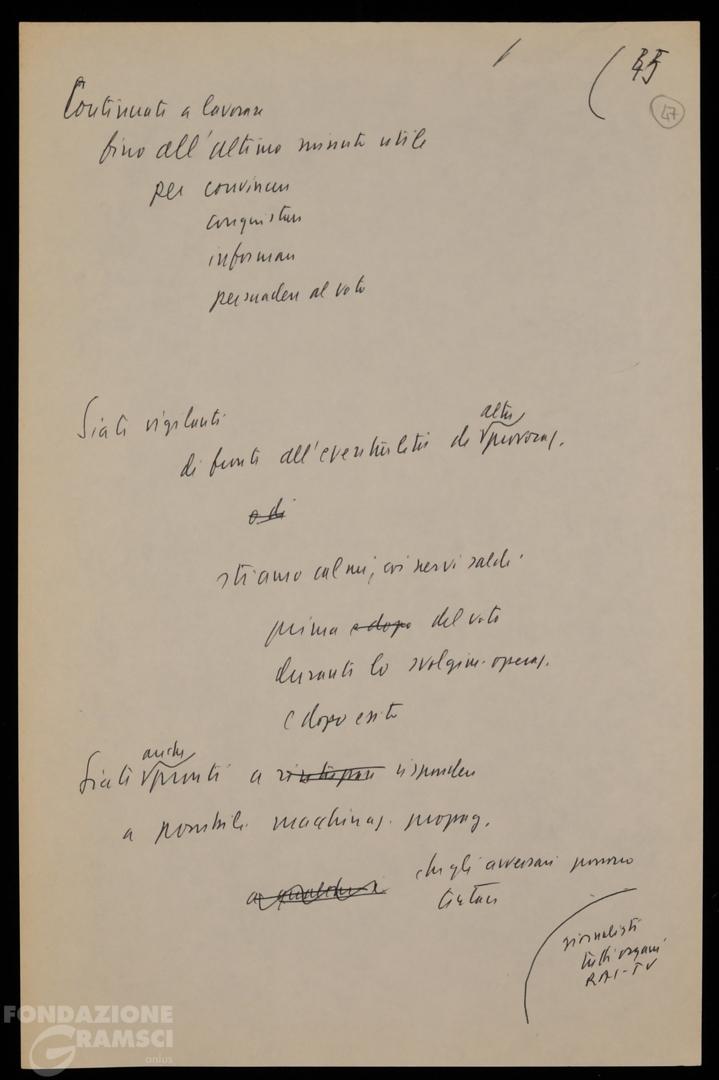 45
47
Continuate a lavorare
fino all'ultimo minuto utile
per convincere
conquistare
informare
persuadere al voto
Siate vigilanti
altre
di fronte all'eventualità di provocaz.
o di
stiamo calmi, coi nervi saldi
prima e dopo del voto
durante lo svolgim. operaz.
e dopo esito
anche
Siate pronti a rispondere
a possibili macchinaz. propag.
a qualche
che gli avversari possono
tentare
giornalisti
tutti organi
RAI-TV
FONDAZIONE
GRAMSCI
onlus